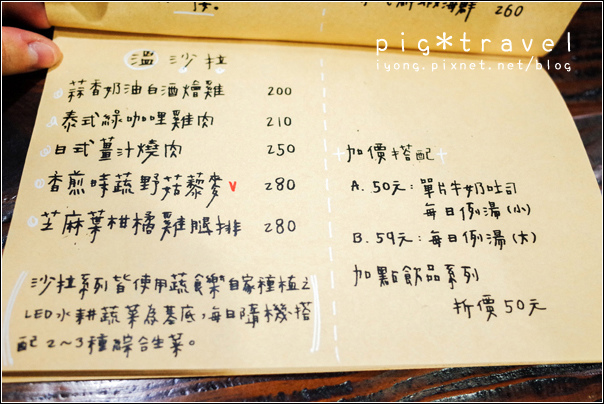 260
pig*travel
iyong.pixnet.net/blog
溫沙拉
蒜香奶油白酒燴雞 200
泰式綠咖哩雞肉 210
日式薑汁燒肉 250
香煎時蔬野菇藜麥 v 280
芝麻葉柑橘雞腿排 280
沙拉系列皆使用蔬食樂自家種植之
LED水耕蔬菜為基底，每日隨機搭
配2~3種綜合生菜。
加價搭配
A. 50元：單片牛奶吐司
每日例湯(小)
B. 59元：每日例湯(大)
加點飲品系列
折價50元